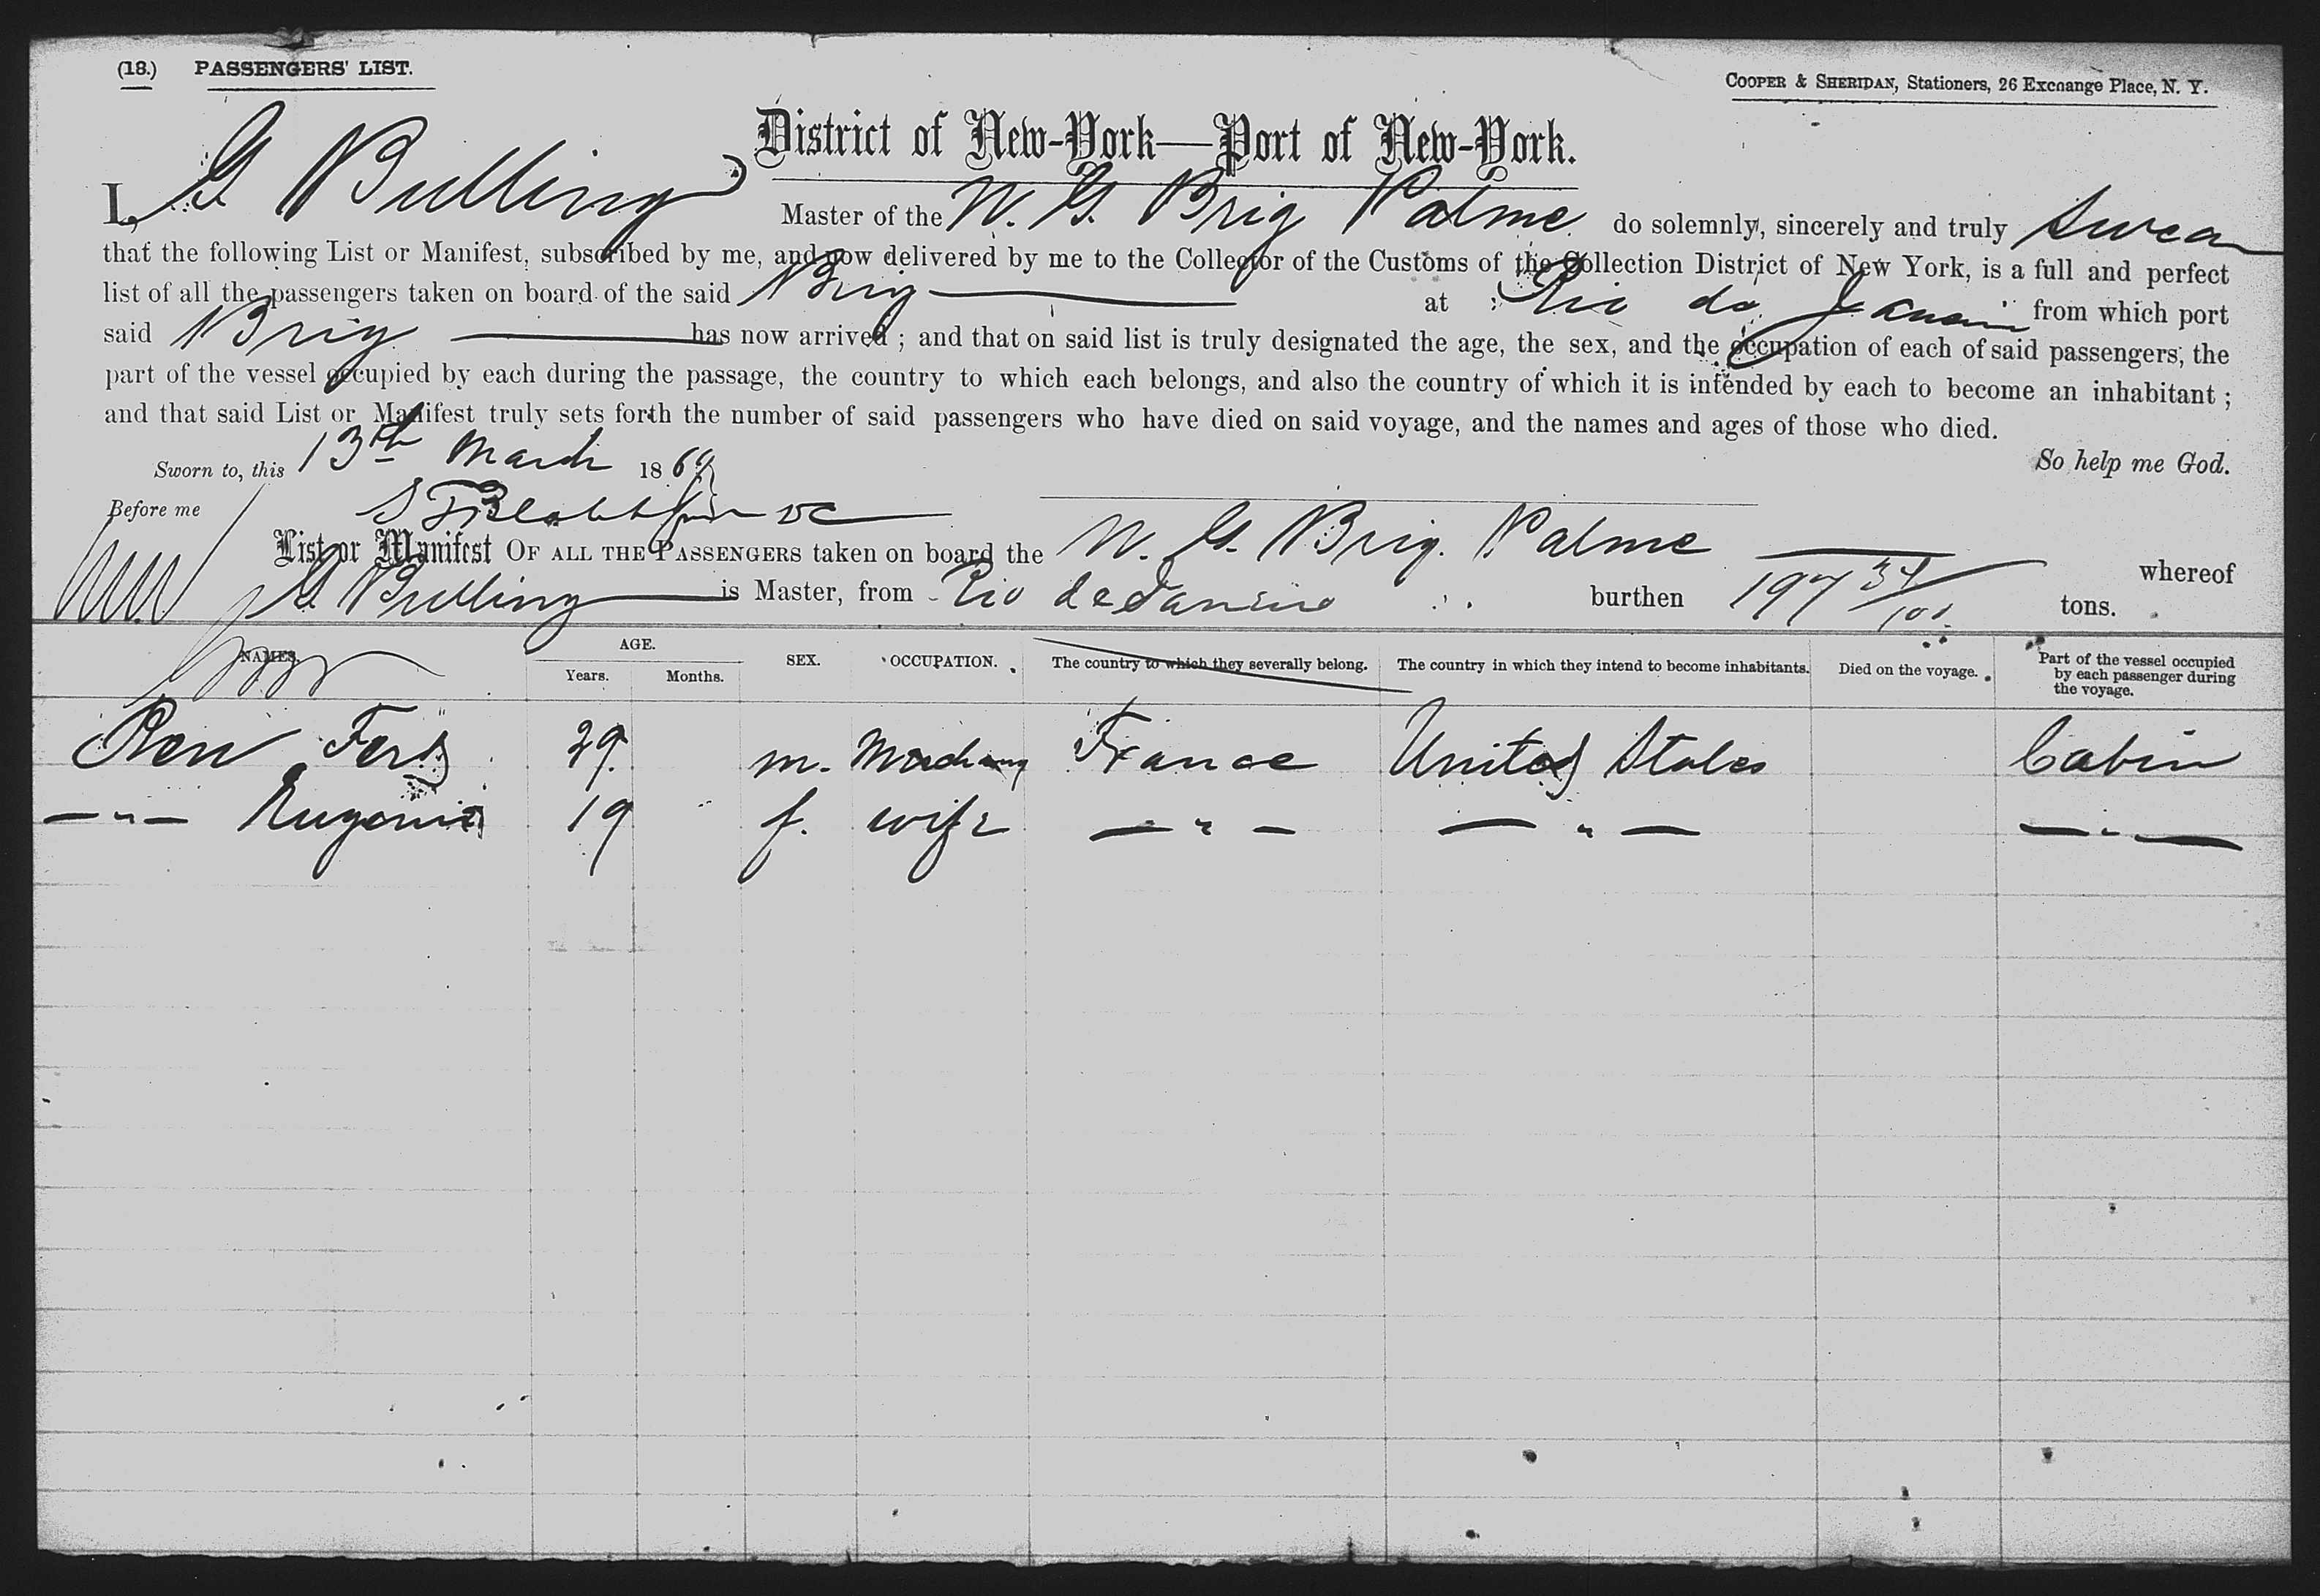 (18.) PASSENGERS' LIST.
COOPER & SHERIDAN, Stationers, 26 Exchange Place, N. Y.
District of New-York—Port of New-York.
I, G Bulling Master of the N. G. Brig Palme do solemnly, sincerely and truly swear
that the following List or Manifest, subscribed by me, and now delivered by me to the Collector of the Customs of the Collection District of New York, is a full and perfect
list of all the passengers taken on board of the said Brig at Rio de Janeiro from which port
said Brig has now arrived ; and that on said list is truly designated the age, the sex, and the occupation of each of said passengers, the
part of the vessel occupied by each during the passage, the country to which each belongs, and also the country of which it is intended by each to become an inhabitant ;
and that said List or Manifest truly sets forth the number of said passengers who have died on said voyage, and the names and ages of those who died.
Sworn to, this 13th March 1869
So help me God.
Before me
List or Manifest OF ALL THE PASSENGERS taken on board the N. G. Brig. Palme whereof
G Bulling is Master, from Rio de Janeiro burthen 197 tons.
NAMES. AGE. Years. Months. SEX. OCCUPATION. The country to which they severally belong. The country in which they intend to become inhabitants. Died on the voyage. Part of the vessel occupied by each passenger during the voyage.
29. m. France United States Cabin
— " — Eugenie 19 f. wife — " — — " — — " —